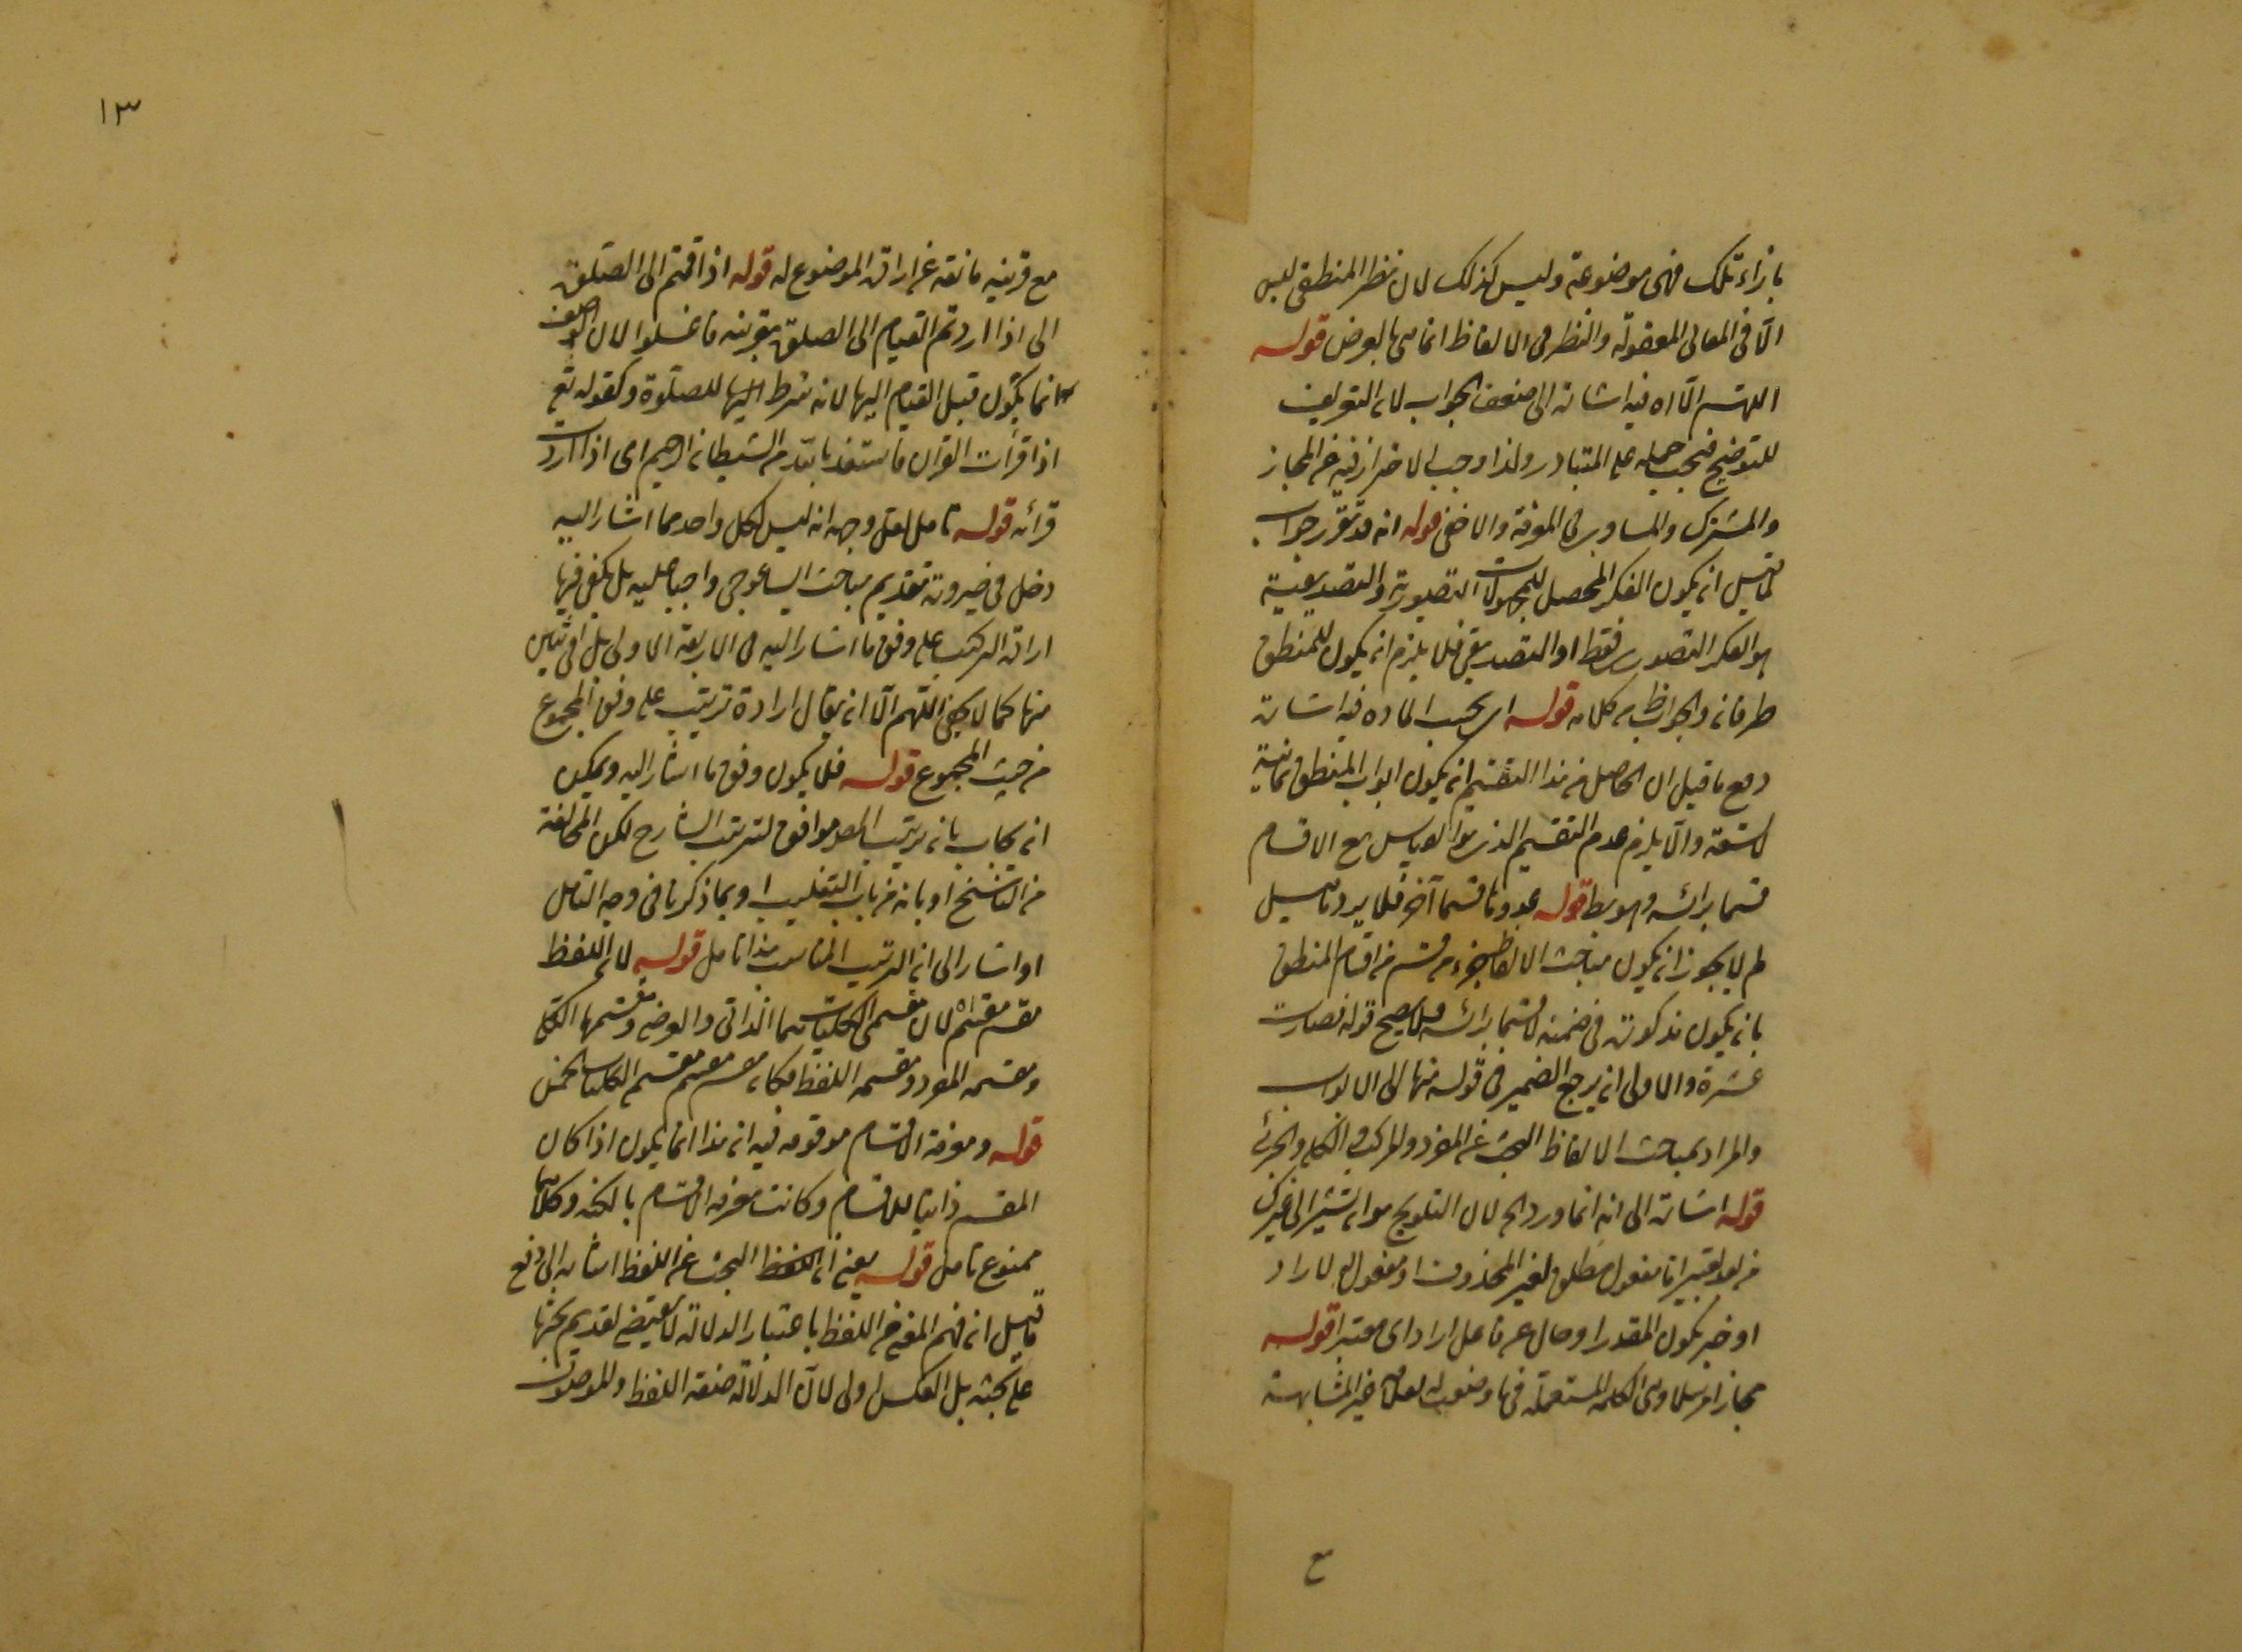 بازاء تلك فهى موضوعة وليس كذلك لان نظر المنطقى ليس
الّا فى المعانى المعقولة والنظر فى الالفاظ انما هى بالعرض قوله
اللهم الّا اه فيه اشارة الى ضعف الجواب لان التعريف
للتوضيح فيجب حمله على المتبادر ولذا وجب الاحتراز فيه عن المجاز
والمشترك والمساوى فى المعرفة والاخفى قوله انه قد تقرر جواب
لما قيل ان يكون الفكر المحصل للمجهولات التصورية والتصديقية
هو الفكر التصورى فقط او التصديقى فلا يلزم ان يكون للمنطق
طرفان والجواب ظ من كلامه قوله اى بحسب المادة فيه اشارة
دفع ما قيل ان الحاصل من هذا التقسيم ان يكون ابواب المنطق ثمانية
لا تسعة والّا يلزم عدم التقسيم الذى هو القياس مع الاقسام
قسما برائسه وهو بط قوله عدوها قسما آخر فلا يرد ما قيل
لم لا يجوز ان يكون مباحث الالفاظ جزء من قسم من اقسام المنطق
بان يكون مذكورة فى ضمنه لا قسما برائسه فلا يصح قوله فصارت
عشرة والاولى ان يرجع الضمير فى قوله منها الى الابواب
والمراد بمباحث الالفاظ البحث عن المفرد والمركب والكلى والجزئى
قوله اشارة الى انه انما ورد الخ لان التلويح هو ان تشير الى غيرك
من بعد تعبير اما مفعول مطلق لغير المحذوف او مفعول له لاراد
او خبر يكون المقدر او حال عن فاعل اراد اى معتبرا قوله
مجازا مرسلا وهى الكلمة المستعملة فى ما وضعت له لعلاقة غير المشابهة
مع
١٣
مع قرينة مانعة عن ارادة الموضوع له قوله اذا قمتم الى الصلوة
الى اذا اردتم القيام الى الصلوة بقرينة فاغسلوا لان الوضوء
انما يكون قبل القيام اليها لانه شرط اليها للصلوة وكقوله تع
اذا قرأت القرآن فاستعذ بالله من الشيطان الرجيم اى اذا اردت
قرائه قوله تامل لعل وجهه انه ليس لكل واحد مما اشار اليه
دخل فى ضرورة تقديم مباحث ايساغوجى واجبا عليه بل يكفى فيها
ارادة التركيب على وفق ما اشار اليه فى الاربعة الاولى بل فى اثنين
منها كما لا يخفى اللّهم الّا ان يقال ارادة ترتيب على وفق المجموع
من حيث المجموع قوله فلا يكون وفق ما اشار اليه ويمكن
ان يجاب بان ترتيب المص موافق لترتيب الشارح لكن المخالفة
من الناسخ او بانه من باب التغليب او بما ذكرنا فى وجه التامل
او اشار الى ان الترتيب المناسب هذا تامل قوله لان اللفظ
مقسم مقسم اه لان مقسمى الكليات هما الذاتى والعرضى ومقسمهما الكلى
ومقسمه المفرد ومقسمه اللفظ فكان مقسم مقسم مقسم الكليات الخمس
قوله ومعرفة الاقسام موقوفة فيه ان هذا انما يكون اذا كان
المقسم ذاتيا للاقسام وكانت معرفة الاقسام بالكنه وكلاهما
ممنوع تامل قوله يعنى ان اللفظ البحث عن اللفظ اشارة الى دفع
ما قيل ان فهم المعنى من اللفظ باعتبار الدلالة لا يقتضى تقديم بحثها
على بحثه بل العكس اولى لان الدلالة صفة اللفظ والموصوف